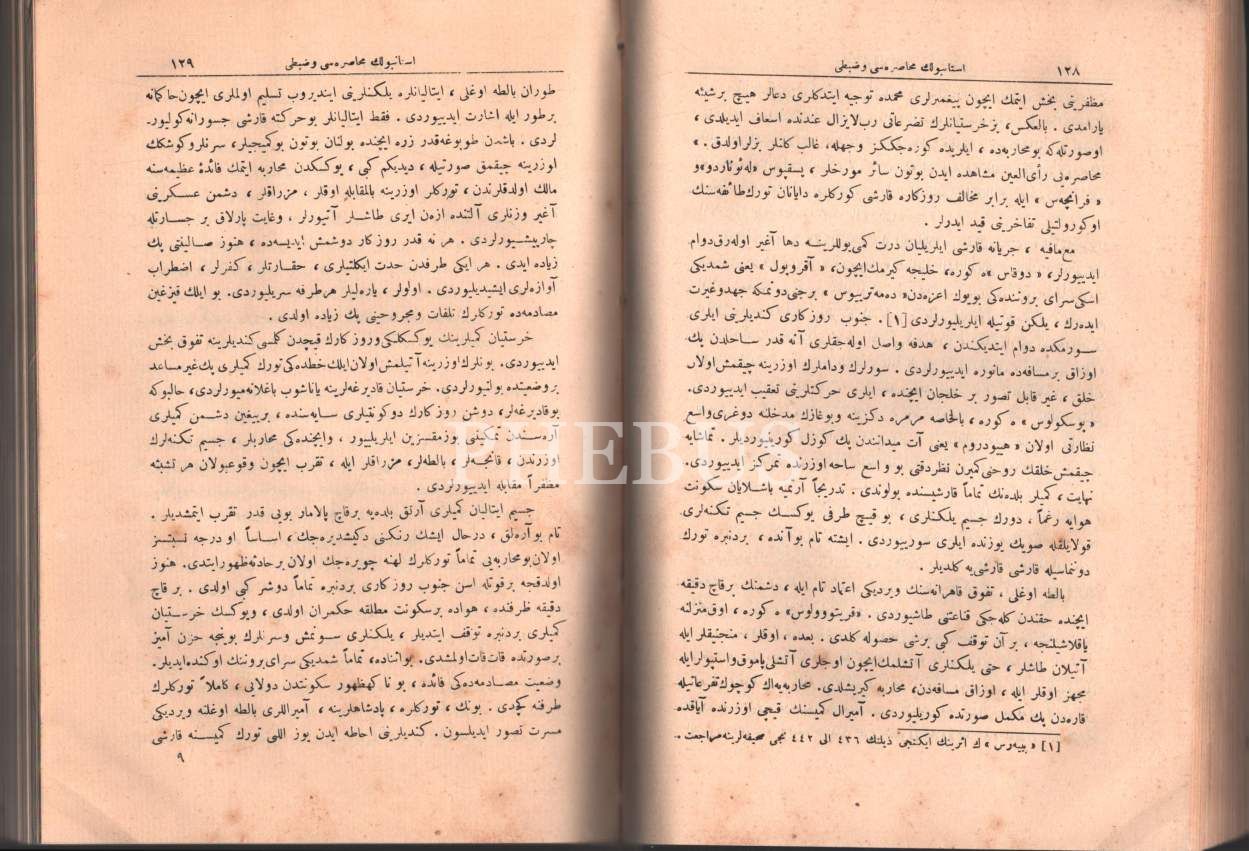 ١٢٨
استانبولك محاصره‌سی وضبطی
مظفریتی بخش ایتمك ایچون پیغمبرلری محمده توجیه ایتدكلری دعالر هیچ برشیئه
یارامدی . بالعكس، بزخرستیانلرك تضرعاتی رب لایزال عندنده اسعاف ایدیلدی ،
اوصورتله‌كه بومحاربه‌ده ، ایلریده كوره‌جككز وجهله، غالب كلنلر بزلر اولدق . »
محاصره‌یی رأی‌العین مشاهده ایدن بوتون سائر مورخلر ، پسقپوس «له‌ئوناردو» و
« فرانچه‌س » ایله برابر مخالف روزكاره قارشی كوركلره دایانان تورك طائفه‌سنك
اوكورولتیلی تفاخرینی قید ایدرلر .
مع‌مافیه ، جریانه قارشی ایلریلیان درت كمی یوللرینه دها آغیر اوله‌رق دوام
ایدییورلر، « دوقاس »ه كوره، خلیجه كیرمك ایچون، « آقروپول » یعنی شمدیكی
اسكی سرای بروننده‌كی بویوك اعزه‌دن « ده‌مه‌ترییوس » برجنی دونمكه جهد وغیرت
ایده‌رك ، یلكن قوتیله ایلریلیورلردی [١] . جنوب روزكاری كندیلرینی ایلری
سورمكده دوام ایتدیكندن ، هدفه واصل اوله‌جقلری آنه قدر ساحلدن پك
اوزاق برمسافه‌ده مانوره ایدییورلردی . سورلرك ودامارك اوزرینه چیقمش اولان
خلق ، غیر قابل تصور بر خلجان ایچنده ، ایلری حركتلرینی تعقیب ایدییوردی.
« پوسكولوس » ه كوره ، بالخاصه مرمره دكزینه وبوغازك مدخلنه دوغری واسع
نظارتی اولان « هیپودروم » یعنی آت میداندن پك كوزل كوریلیوردیلر . تماشایه
چیقمش خلقك روحنی كمیرن نظر دقتی بو واسع ساحه اوزرنده تمركز ایدییوردی.
نهایت ، كمیلر بلده‌نك تماماً قارشیسنده بولوندی . تدریجاً آرتمیه باشلایان سكونت
هوایه رغماً ، دورك جسیم یلكنلری ، بو قیچ طرفی یوكسك جسیم تكنه‌لری
قولایلقله صویك یوزنده ایلری سورییوردی . ایشته تام بوآنده ، بردنبره تورك
دونماسیله قارشی قارشی‌یه كلدیلر .
بالطه اوغلی ، تفوق قاهرانه‌سنك ویردیكی اعتماد تام ایله ، دشمنك برقاچ دقیقه
ایچنده حقندن كله‌جكی قناعتی طاشیوردی . « قریتووولوس » ه كوره ، اوق منزلنه
یاقلاشیلنجه ، برآن توقف كبی برشی حصوله كلدی . بعده ، اوقلر ، منجنیقلر ایله
آتیلان طاشلر ، حتی یلكنلری آتشلمك ایچون اوجلری آتشلی پاموق واستپولر ایله
مجهز اوقلر ایله ، اوزاق مسافه‌دن، محاربه كیریشلدی. محاربه‌یه‌ك كوچوك تفرعاتیله
قاره‌دن پك مكمل صورتده كوریلیوردی . آمیرال كمیسنك قیچی اوزرنده آیاقده
[١] « پییه‌رس » ك اثرینك ایكنجی ذیلنك ٤٣٦ الی ٤٤٢ نجی صحیفه‌لرینه مراجعت .
استانبولك محاصره‌سی وضبطی
١٢٩
طوران بالطه اوغلی ، ایتالیانلره یلكنلرینی ایندیروب تسلیم اولملری ایچون حاكمانه
برطور ایله اشارت ایدییوردی . فقط ایتالیانلر بوحركته قارشی جسورانه كولیور-
لردی . باشدن طوپوغه‌قدر زره ایچنده بولنان بوتون بوكمیجیلر، سرنلروكوشكك
اوزرینه چیقمق صورتیله ، دیدیكم كبی ، یوكسكدن محاربه ایتمك فائدۀ عظیمه‌سنه
مالك اولدقلرندن ، توركلر اوزرینه بالمقابله اوقلر ، مزراقلر ، دشمن عسكرینی
آغیر وزنلری آلتنده ازه‌ن ایری طاشلر آتیورلر ، وغایت پارلاق بر جسارتله
چارپیشیورلردی . هر نه قدر روزكار دوشمش ایدیسه‌ده ، هنوز صالیغنی پك
زیاده ایدی . هر ایكی طرفدن حدت ایكلتیلری ، حقارتلر ، كفرلر ، اضطراب
آوازه‌لری ایشیدیلیوردی . اولولر ، یاره‌لیلر هرطرفه سریلیوردی . بو ایلك قیزغین
مصادمه‌ده توركلرك تلفات ومجروحینی پك زیاده اولدی .
خرستیان كمیلرینك یوكسكلكی وروز كارك قیچدن كلمسی كندیلرینه تفوق بخش
ایدییوردی. بونلرك اوزرینه آتیلمش اولان ایلك خطده‌كی تورك كمیلری پك غیر مساعد
بروضعیتده بولنیورلردی. خرستیان قادیرغه‌لرینه یاناشوب باغلانه‌میورلردی، حالبوكه
بوقادیرغه‌لر، دوشن روز كارك دوكونتیلری سایه‌سنده ، بربیغین دشمن كمیلری
آره‌سندن تمكینی بوزمقسزین ایلریلییور ، وایچنده‌كی محاربلر ، جسیم تكنه‌لرك
اوزرندن ، قانجه‌لر ، بالطه‌لر، مزراقلر ایله ، تقرب ایچون وقوعبولان هر تشبثه
مظفراً مقابله ایدییورلردی .
جسیم ایتالیان كمیلری آرتق بلده‌یه برقاچ پالامار بویی قدر تقرب ایتمشدیلر .
تام بوآره‌لق ، درحال ایشك رنكنی دكیشدیره‌جك ، اساساً او درجه نسبتسز
اولان بومحاربه‌یی تماماً توركلرك لهنه چویره‌جك اولان برحادثه ظهور ایتدی. هنوز
اولدقجه برقوتله اسن جنوب روز كاری بردنبره تماماً دوشر كبی اولدی . بر قاچ
دقیقه ظرفنده ، هواده برسكونت مطلقه حكمران اولدی ، ویوكسك خرستیان
كمیلری بردنبره توقف ایتدیلر ، یلكنلری سونمش وسرنلرك بوینجه حزن آمیز
برصورتده قات قات اولمشدی. بواثناده، تماماً شمدیكی سرای بروننك اوكنده ایدیلر.
وضعیت مصادمه‌ده‌كی فائده ، بو ناكهظهور سكونتدن دولایی ، كاملاً توركلرك
طرفنه كچدی . بونك ، توركلره ، پادشاهلرینه ، آمیراللری بالطه اوغلنه ویردیكی
مسرت تصور ایدیلسون . كندیلرینی احاطه ایدن یوز اللی تورك كمیسنه قارشی
٩
PHEBUS